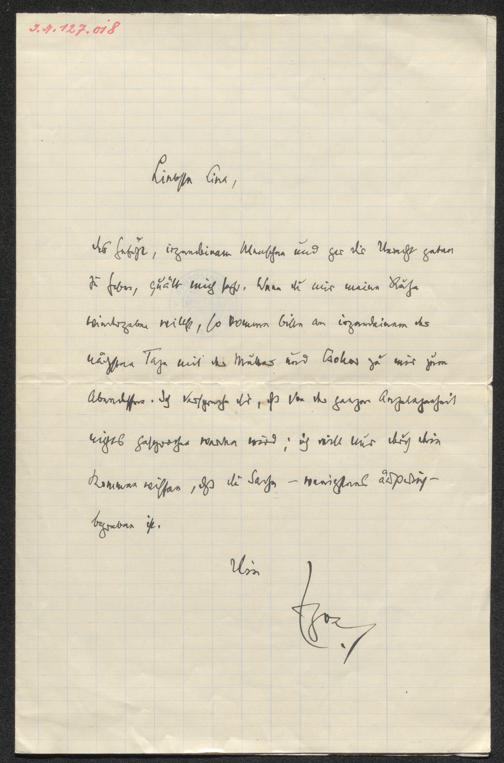 3.4.127.018
Liebste Lina,
das Gefühl, irgendeinem Menschen und gar dir Unrecht getan
zu haben, quält mich sehr. Wenn du mir meine Ruhe
wiedergeben willst, so komme bitte an irgendeinem der
nächsten Tage mit der Mutter und zu mir zum
Abendessen. Ich verspreche dir, daß von der ganzen Angelegenheit
nichts gesprochen werden wird; ich will nur durch dein
Kommen wissen, daß die Sache – wenigstens äußerlich –
begraben ist.
Dein